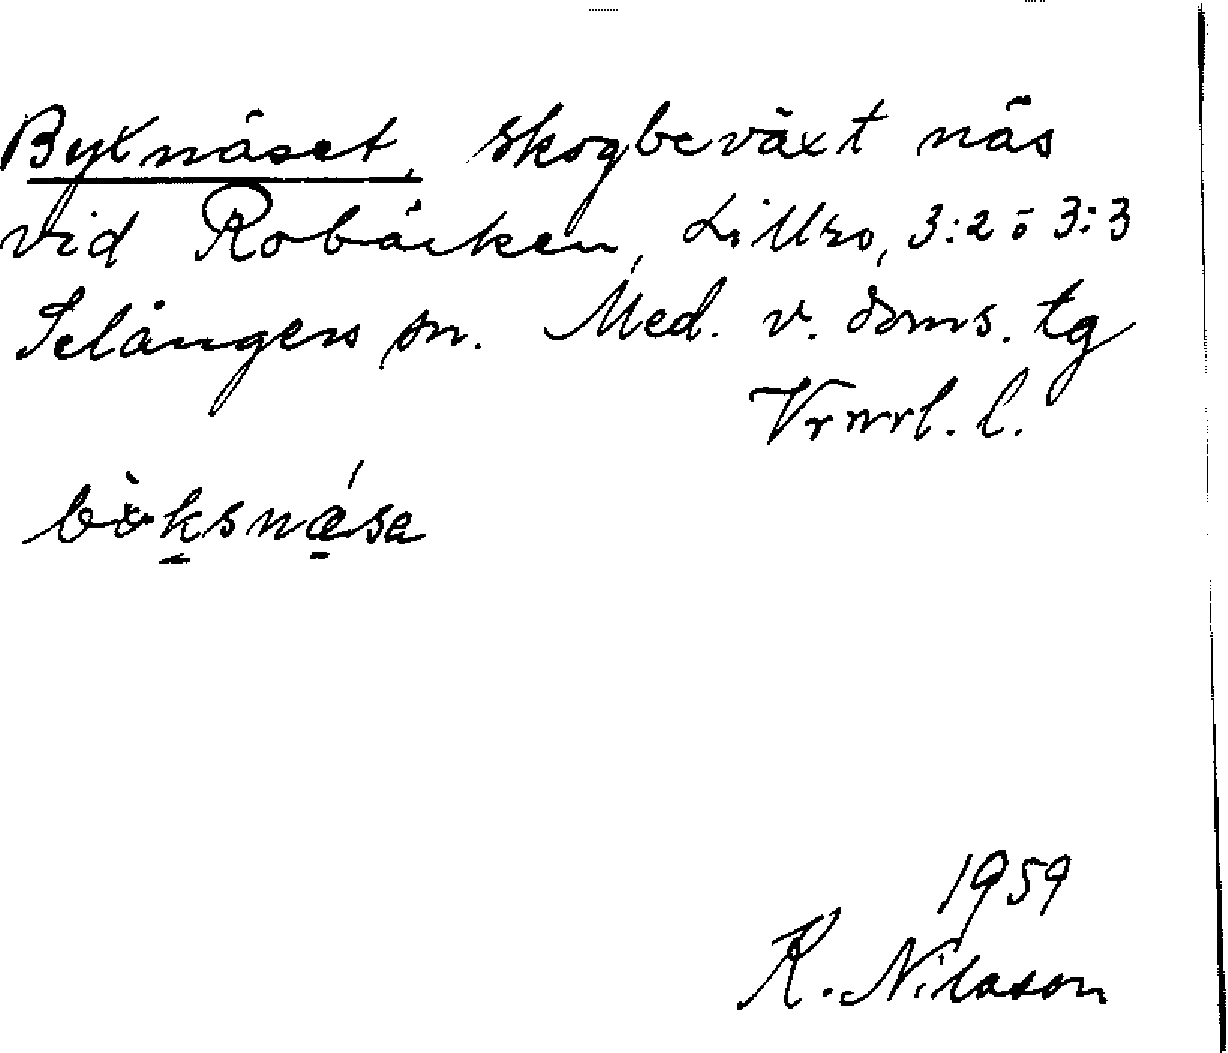 Byxnäset, skogbeväxt näs
vid Robäcken, Lillro, 3:2 ö 3:3
Selångers sn. Med. v. doms. tg
Vrnrl. l.
bö̀ksnésa
1959
K. Nilsson